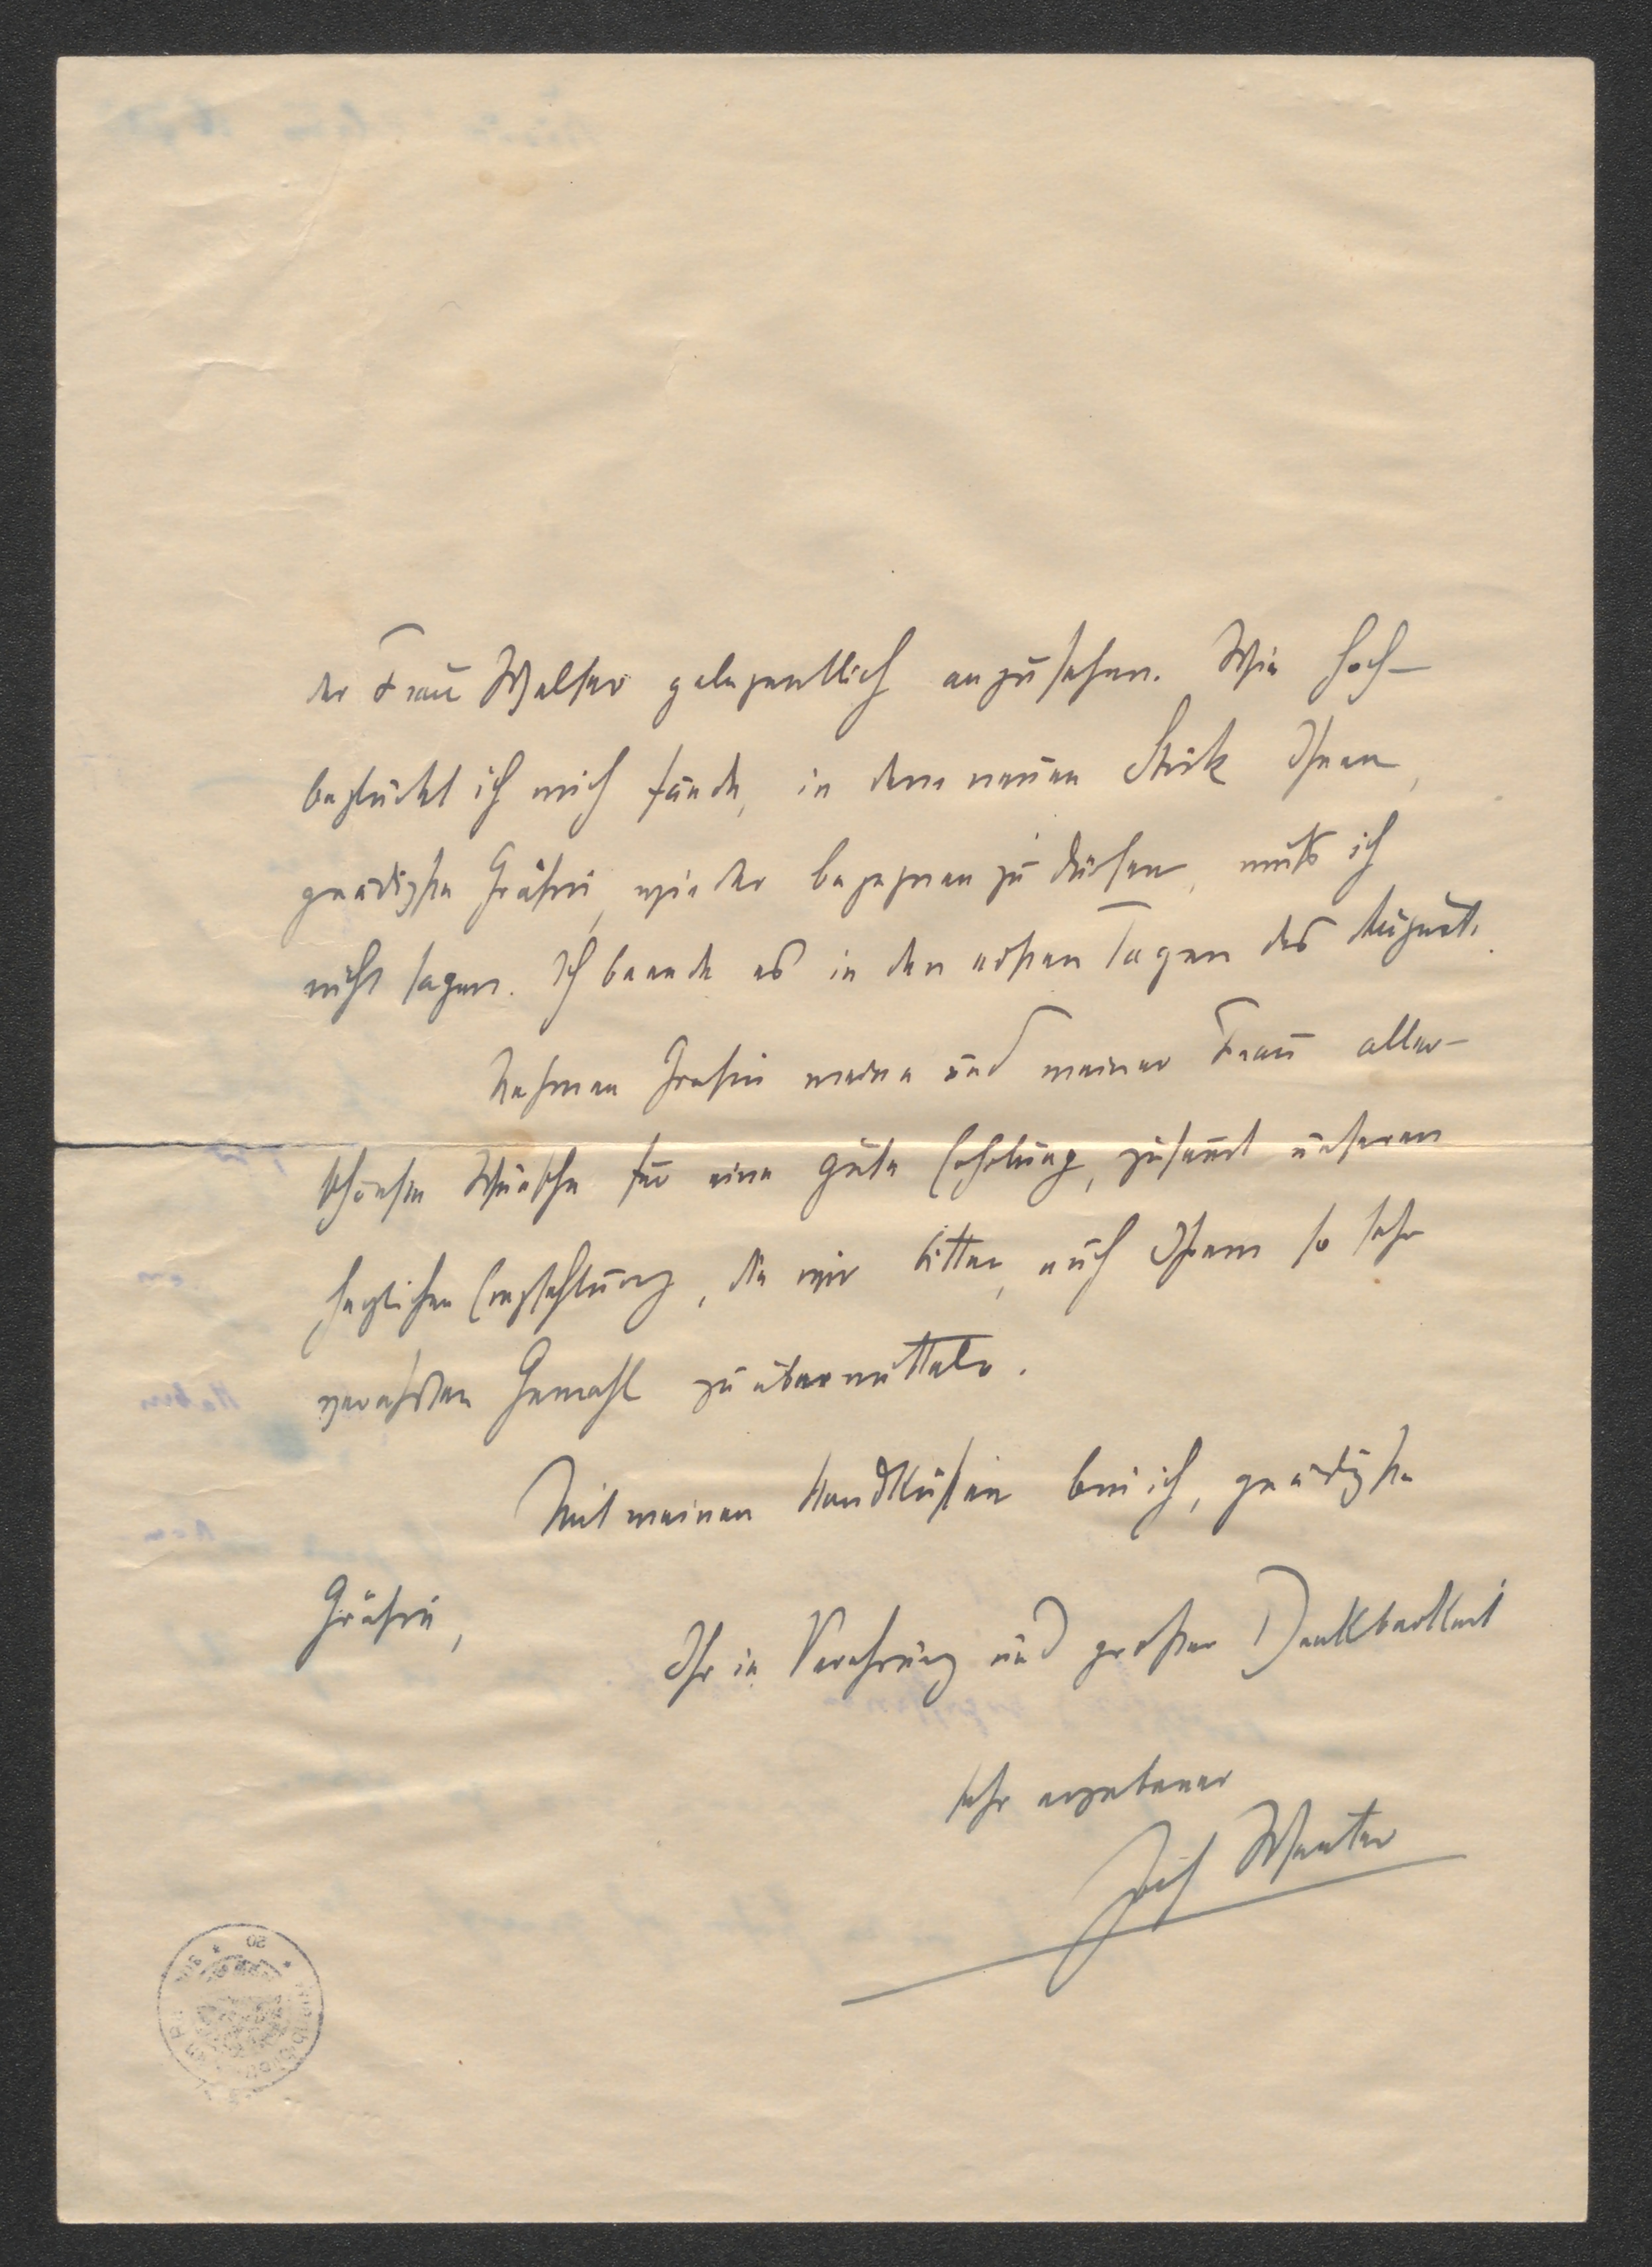 der Frau Walser gelegentlich anzusehen. Wie hoch-
beglückt ich mich fände, in dem neuen Stück Ihnen,
gnädigste Gräfin, wieder begegnen zu dürfen, muß ich
nicht sagen. Ich beende es in den ersten Tagen des August.
Nehmen Gräfin meine und meiner Frau aller-
schönsten Wünsche für eine gute Erholung, zusamt unseren
herzlichen Empfehlung, die wir bitten, auch Ihrem so sehr
verehrten Gemahl zu übermitteln.
Mit meinen Handküssen bin ich, gnädigste
Gräfin,
Ihr in Verehrung und großer Dankbarkeit
sehr ergebener
Josef Wenter